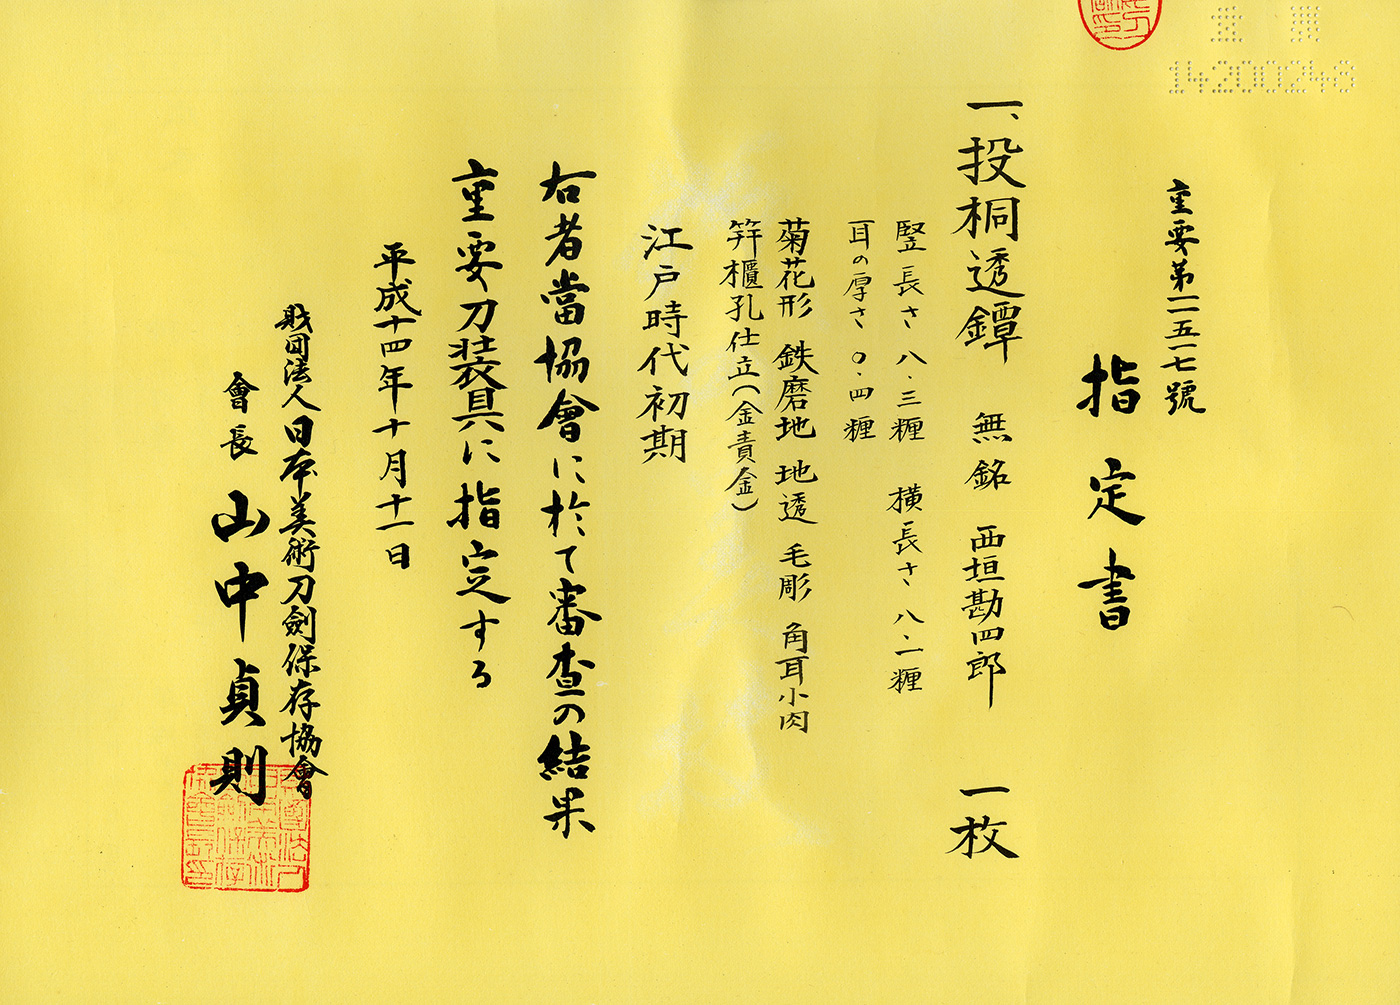 重要第二五一七號
指定書
一、投桐透鐔　無銘　西垣勘四郎　一枚
竪長さ 八・三糎　横長さ 八・一糎
耳の厚さ 〇・四糎
菊花形　鉄磨地　地透　毛彫　角耳小肉
笄櫃孔仕立（金責金）
江戸時代初期
右者當協會に於て審査の結果
重要刀装具に指定する
平成十四年十月十一日
財団法人日本美術刀劍保存協會
會長　山中貞則
14200248